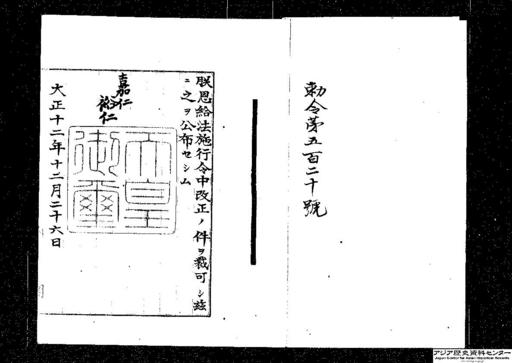 勅令第五百二十號
朕恩給法施行令中改正ノ件ヲ裁可シ茲
ニ之ヲ公布セシム
嘉仁
裕仁
天皇御璽
大正十二年十二月二十六日
アジア歴史資料センター
Japan Center for Asian Historical Records